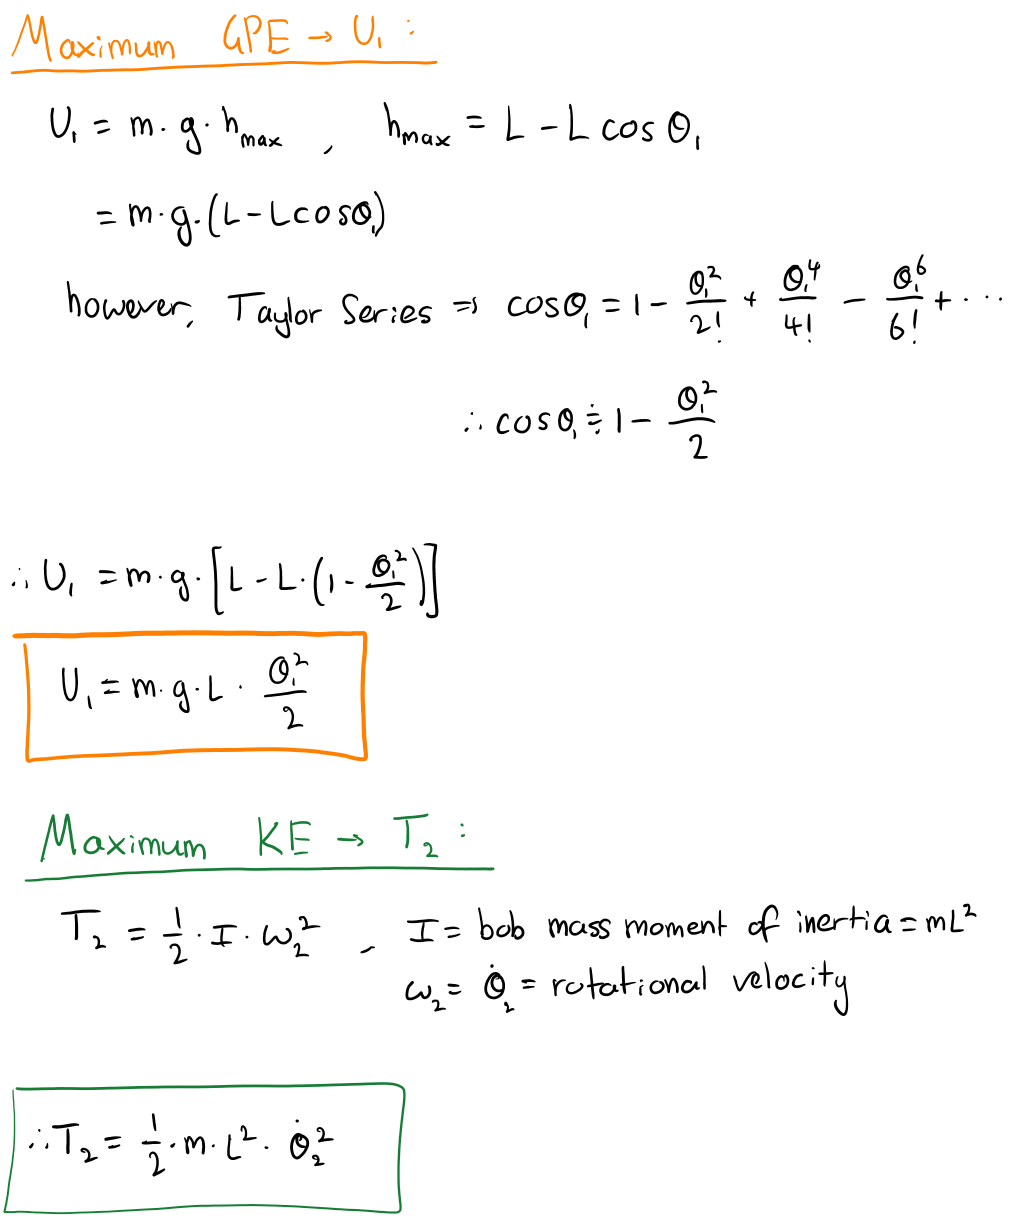 Maximum GPE → U₁ :
U₁ = m · g · h_max , h_max = L − L cos θ₁
= m · g · (L − L cos θ₁)
however, Taylor Series ⇒ cos θ₁ = 1 − θ₁²/2! + θ₁⁴/4! − θ₁⁶/6! + ···
∴ cos θ₁ ≑ 1 − θ₁²/2
∴ U₁ = m · g · [L − L · (1 − θ₁²/2)]
U₁ = m · g · L · θ₁²/2
Maximum KE → T₂ :
T₂ = 1/2 · I · ω₂² , I = bob mass moment of inertia = mL²
ω₂ = θ̇₂ = rotational velocity
∴ T₂ = 1/2 · m · L² · θ̇₂²